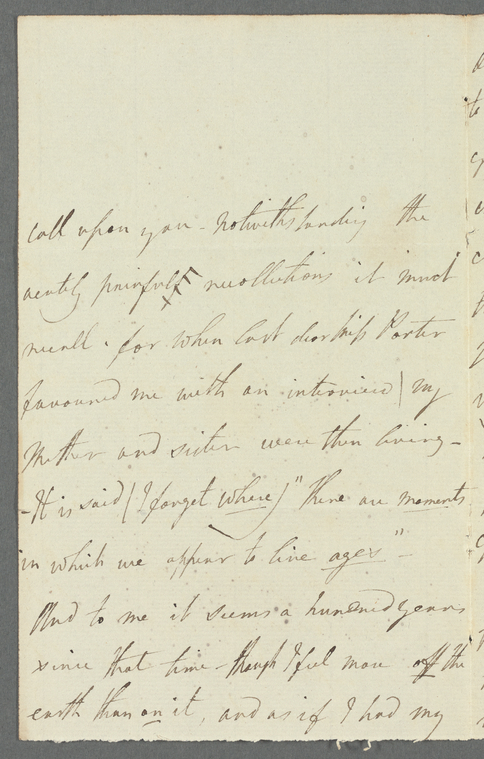 call upon you - notwithstanding the
acutely painful recollections it must
recall. for when last dear Miss Porter
favoured me with an interview | my
Mother and sister were then living -
- It is said (I forget where) " there are moments
in which we appear to live ages " -
And to me it seems a hundred years
since that time - though I feel more off the
earth than on it, and as if I had my